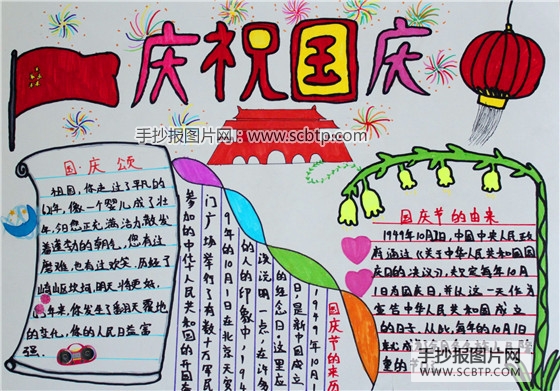 庆祝国庆
手抄报图片网：www.scbtp.com
国·庆颂
祖国，你走过了平凡的
年，像一个婴儿成了壮
年，今日您正充满活力，散发
着蓬勃的朝气，您有过
磨难，也有过欢笑，历经了
崎岖坎坷，明天将更
年来，你发生了翻天覆地
的变化，你的人民日益富
强。
国庆节的来历
1949年10月
日，是新中国成立
的纪念日。这里应
该说明一点，在许多
人的印象中，194
9年的10月1日在北京天安
门广场举行了有数十万军
参加的中华人民共和国的开国
国庆节的由来
1949年10月2日，中国中央人民政
府通过《关于中华人民共和国国
庆日的决议》，规定每年10月
1日为国庆日，并以这一天作为
宣告中华人民共和国成立
的日子，从此，每年的10月1日
就成
重的
手抄报图片网
WWW.SCBTP.COM